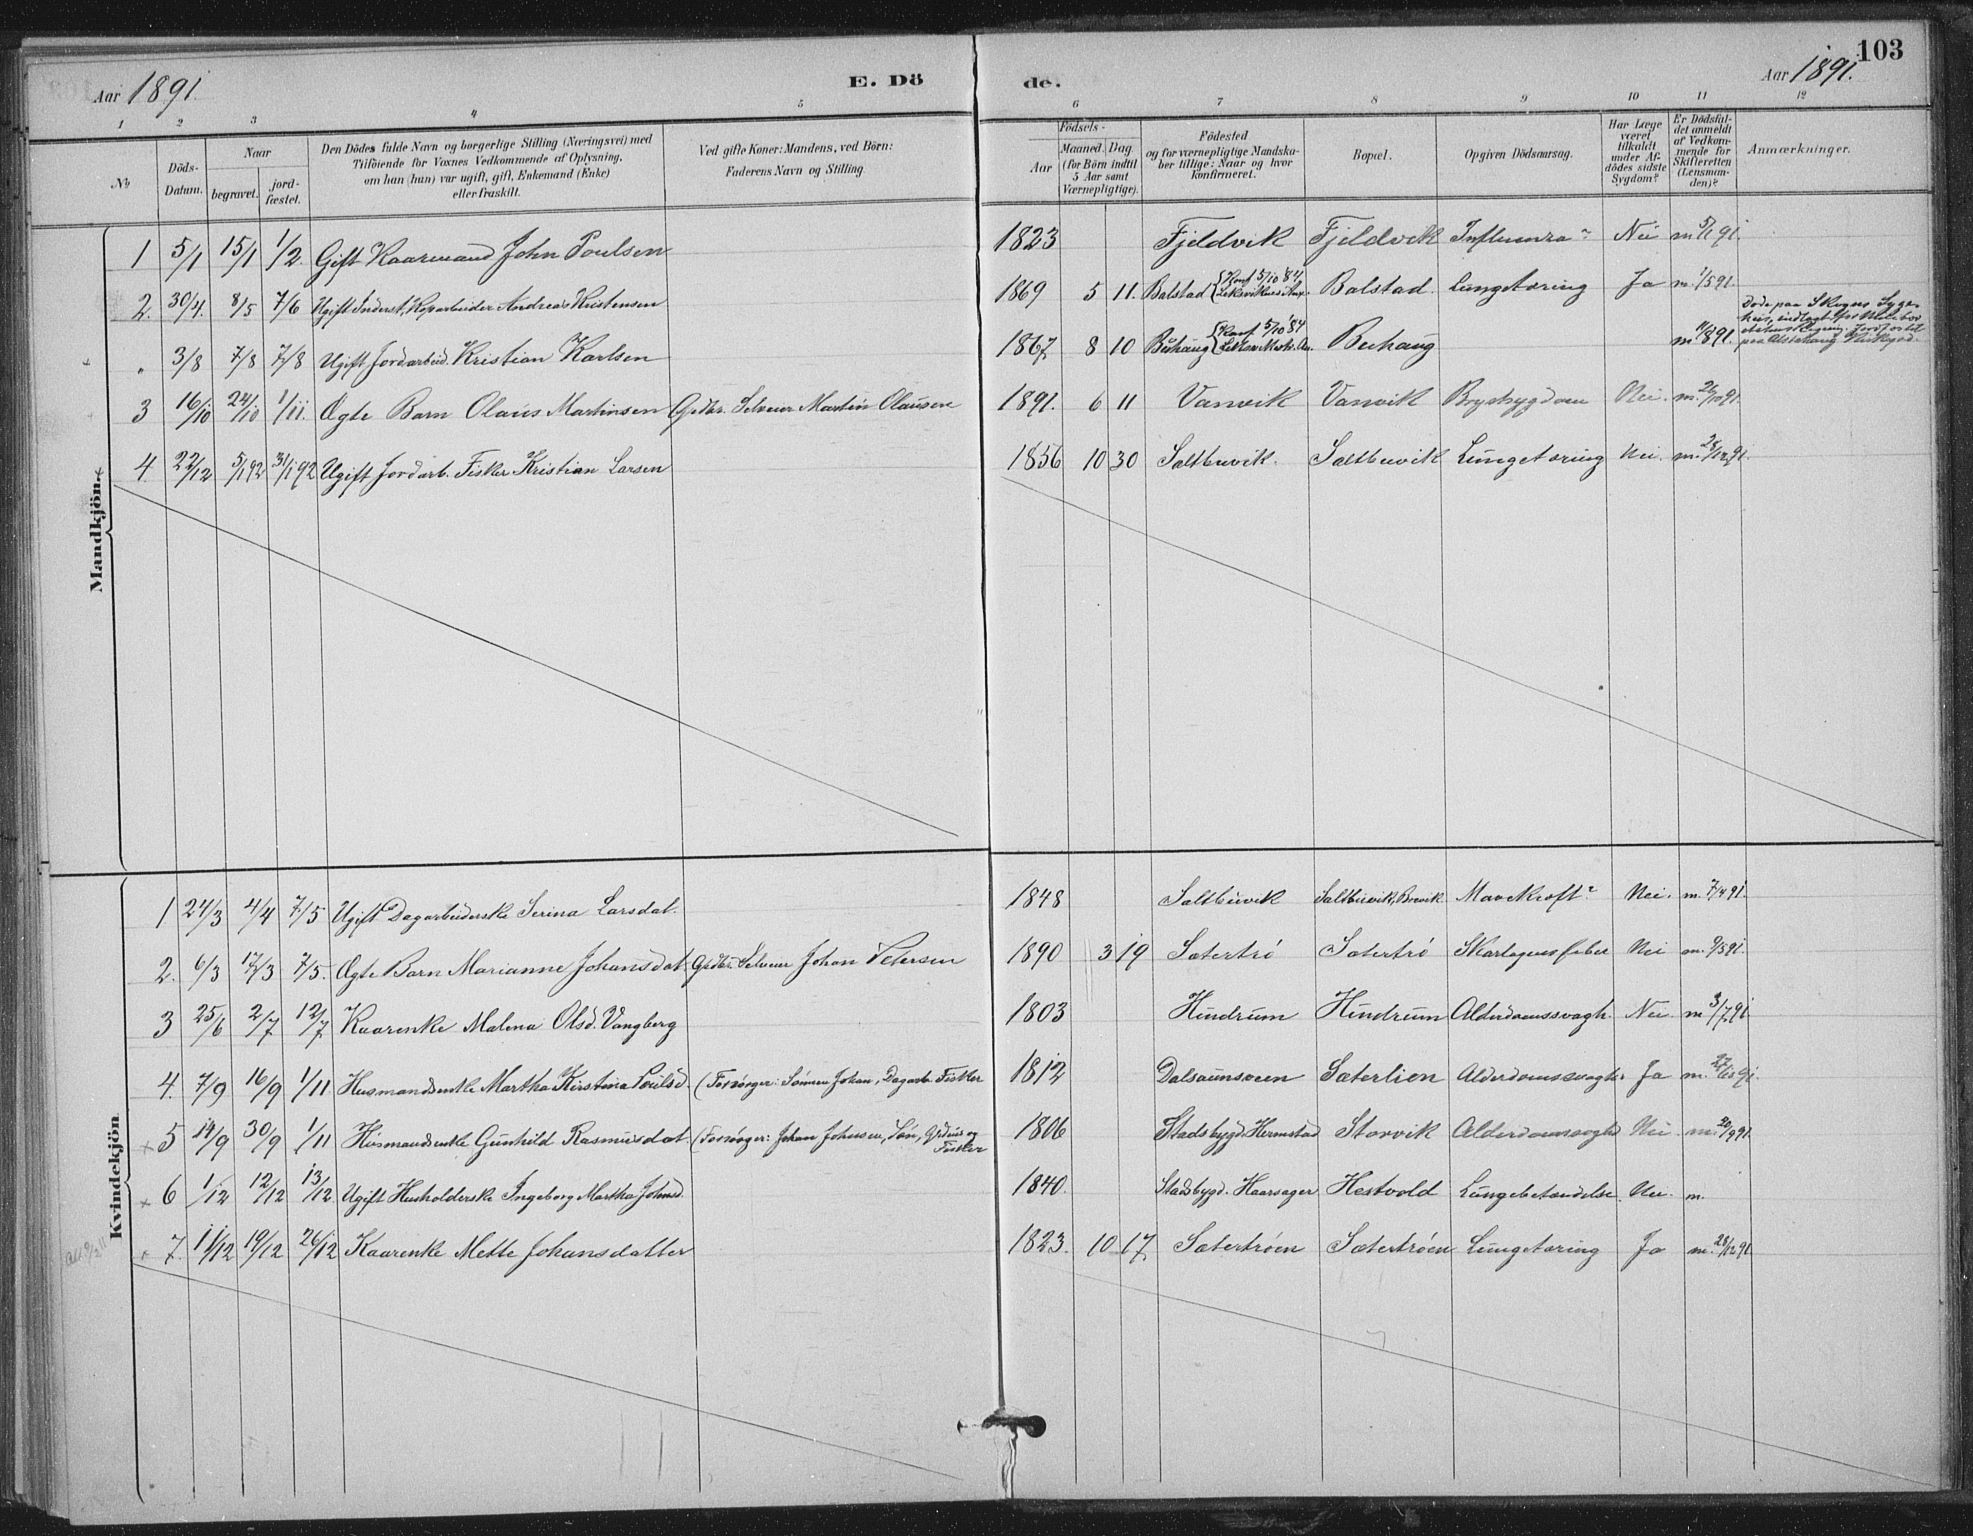 103
Aar 1891. E. Dö de. Aar 1891.
1 2 3 4 5 6 7 8 9 10 11 12
No
Döds-Datum.
Naar
begravet.
jord-fæstet.
Den Dödes fulde Navn og borgerlige Stilling (Næringsvei) med
Tilföiende for Voxnes Vedkommende af Oplysning,
om han (hun) var ugift, gift, Enkemand (Enke)
eller fraskilt.
Ved gifte Koner: Mandens, ved Börn:
Faderens Navn og Stilling.
Födsels-
Aar
Maaned. Dag
(for Börn indtil
5 Aar samt
Værnepligtige).
Födested
og for værnepligtige Mandska-
ber tillige: Naar og hvor
konfirmeret.
Bopæl.
Opgiven Dödsaarsag.
Har Læge
været
tilkaldt
under Af-
dödes sidste
Sygdom?
Er Dödsfal-
det anmeldt
af Vedkom-
mende for
Skifteretten
(Lensman-
den)?
Anmærkninger.
Mandkjön.
1 5/1 15/1 1/2 Gift Kaarmand John Poulsen 1823 Fjeldvik Fjeldvik Influenza? Nei m. 5/1 91.
2. 30/4. 8/5 7/6 Ugift Inderst, Andreas Kristensen 1869 5 11. Balstad (Konf. 5/10 84 Balstad. Lungetæring Ja m. 1/5 91.
" 3/8 7/8 7/8 Ugift Jordarbeid. Kristian Karlsen 1867 8 10 (Konf. 5/10 84 m. 11/8 91. Döde paa Skogns Syge-
hus, indlagt for
paa Alstahaug Kirkegd.
3 16/10 24/10 1/11. Ægte Barn Olaus Martinsen Grdbr. Selveier Martin Olausen 1891. 6 11 Vanvik Vanvik Brystsygdom Nei. m. 26/10 91.
4. 22/12 5/1 92 31/1 92 Ugift Jordarb. Fisker Kristian Larsen 1856 10 30 Saltbuvik. Saltbuvik Lungetæring Nei. m. 28/12 91.
Kvindekjön
1 24/3 4/4 7/5 Ugift Dagarbeiderske Serina Larsdat. 1848 Saltbuvik Saltbuvik, Mavekræft? Nei. m. 7/4 91.
2. 6/3 17/3 7/5. Ægte Barn Marianne Johansdat. Grdbr. Selveier Johan Petersen 1890 3 19 Sætertrö Sætertrö Skarlagensfeber Nei m. 9/5 91.
3 25/6 2/7 12/7 Kaarenke Malena Olsd. Vangberg 1803 Hindrum Hindrum Alderdomssvagh. Nei m. 3/7 91.
4. 7/9 16/9 1/11 Husmandsenke Martha Kirstina Poulsd. (Forsörger: Sönnen Johan, Dagarb. Fisker 1812 Sæterlien Alderdomssvagh. Ja m. 91.
5 19/9 30/9 1/11 Husmandsenke Gunhild Rasmusdat. (Forsörger: Johan Johnsen, Sön, og
Fisker 1806 Stadsbygd. Hermstad Storvik Alderdomssvagh. Nei m. 91.
6 1/12 12/12 13/12 Ugift Husholderske Ingeborg Martha Johnsd. 1840. Stadsbygd. Haarsager Hestvold Lungebetændelse Nei. m.
7. 11/12 19/12 26/12 Kaarenke Mette Johansdatter 1823. 10 17. Sætertröen Sætertröen Lungetæring Ja m. 28/12 91.